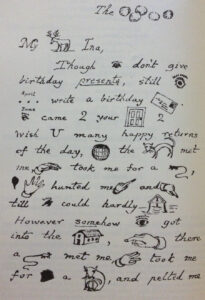 The
My Ina,
Though don't give
birthday presents, still
April
... write a birthday
June
came 2 your 2
wish U many happy returns
of the day, the met
me took me for a
My hunted me and
till could hardly
However somehow got
into the , there
a met me, took me
for a , and pelted me